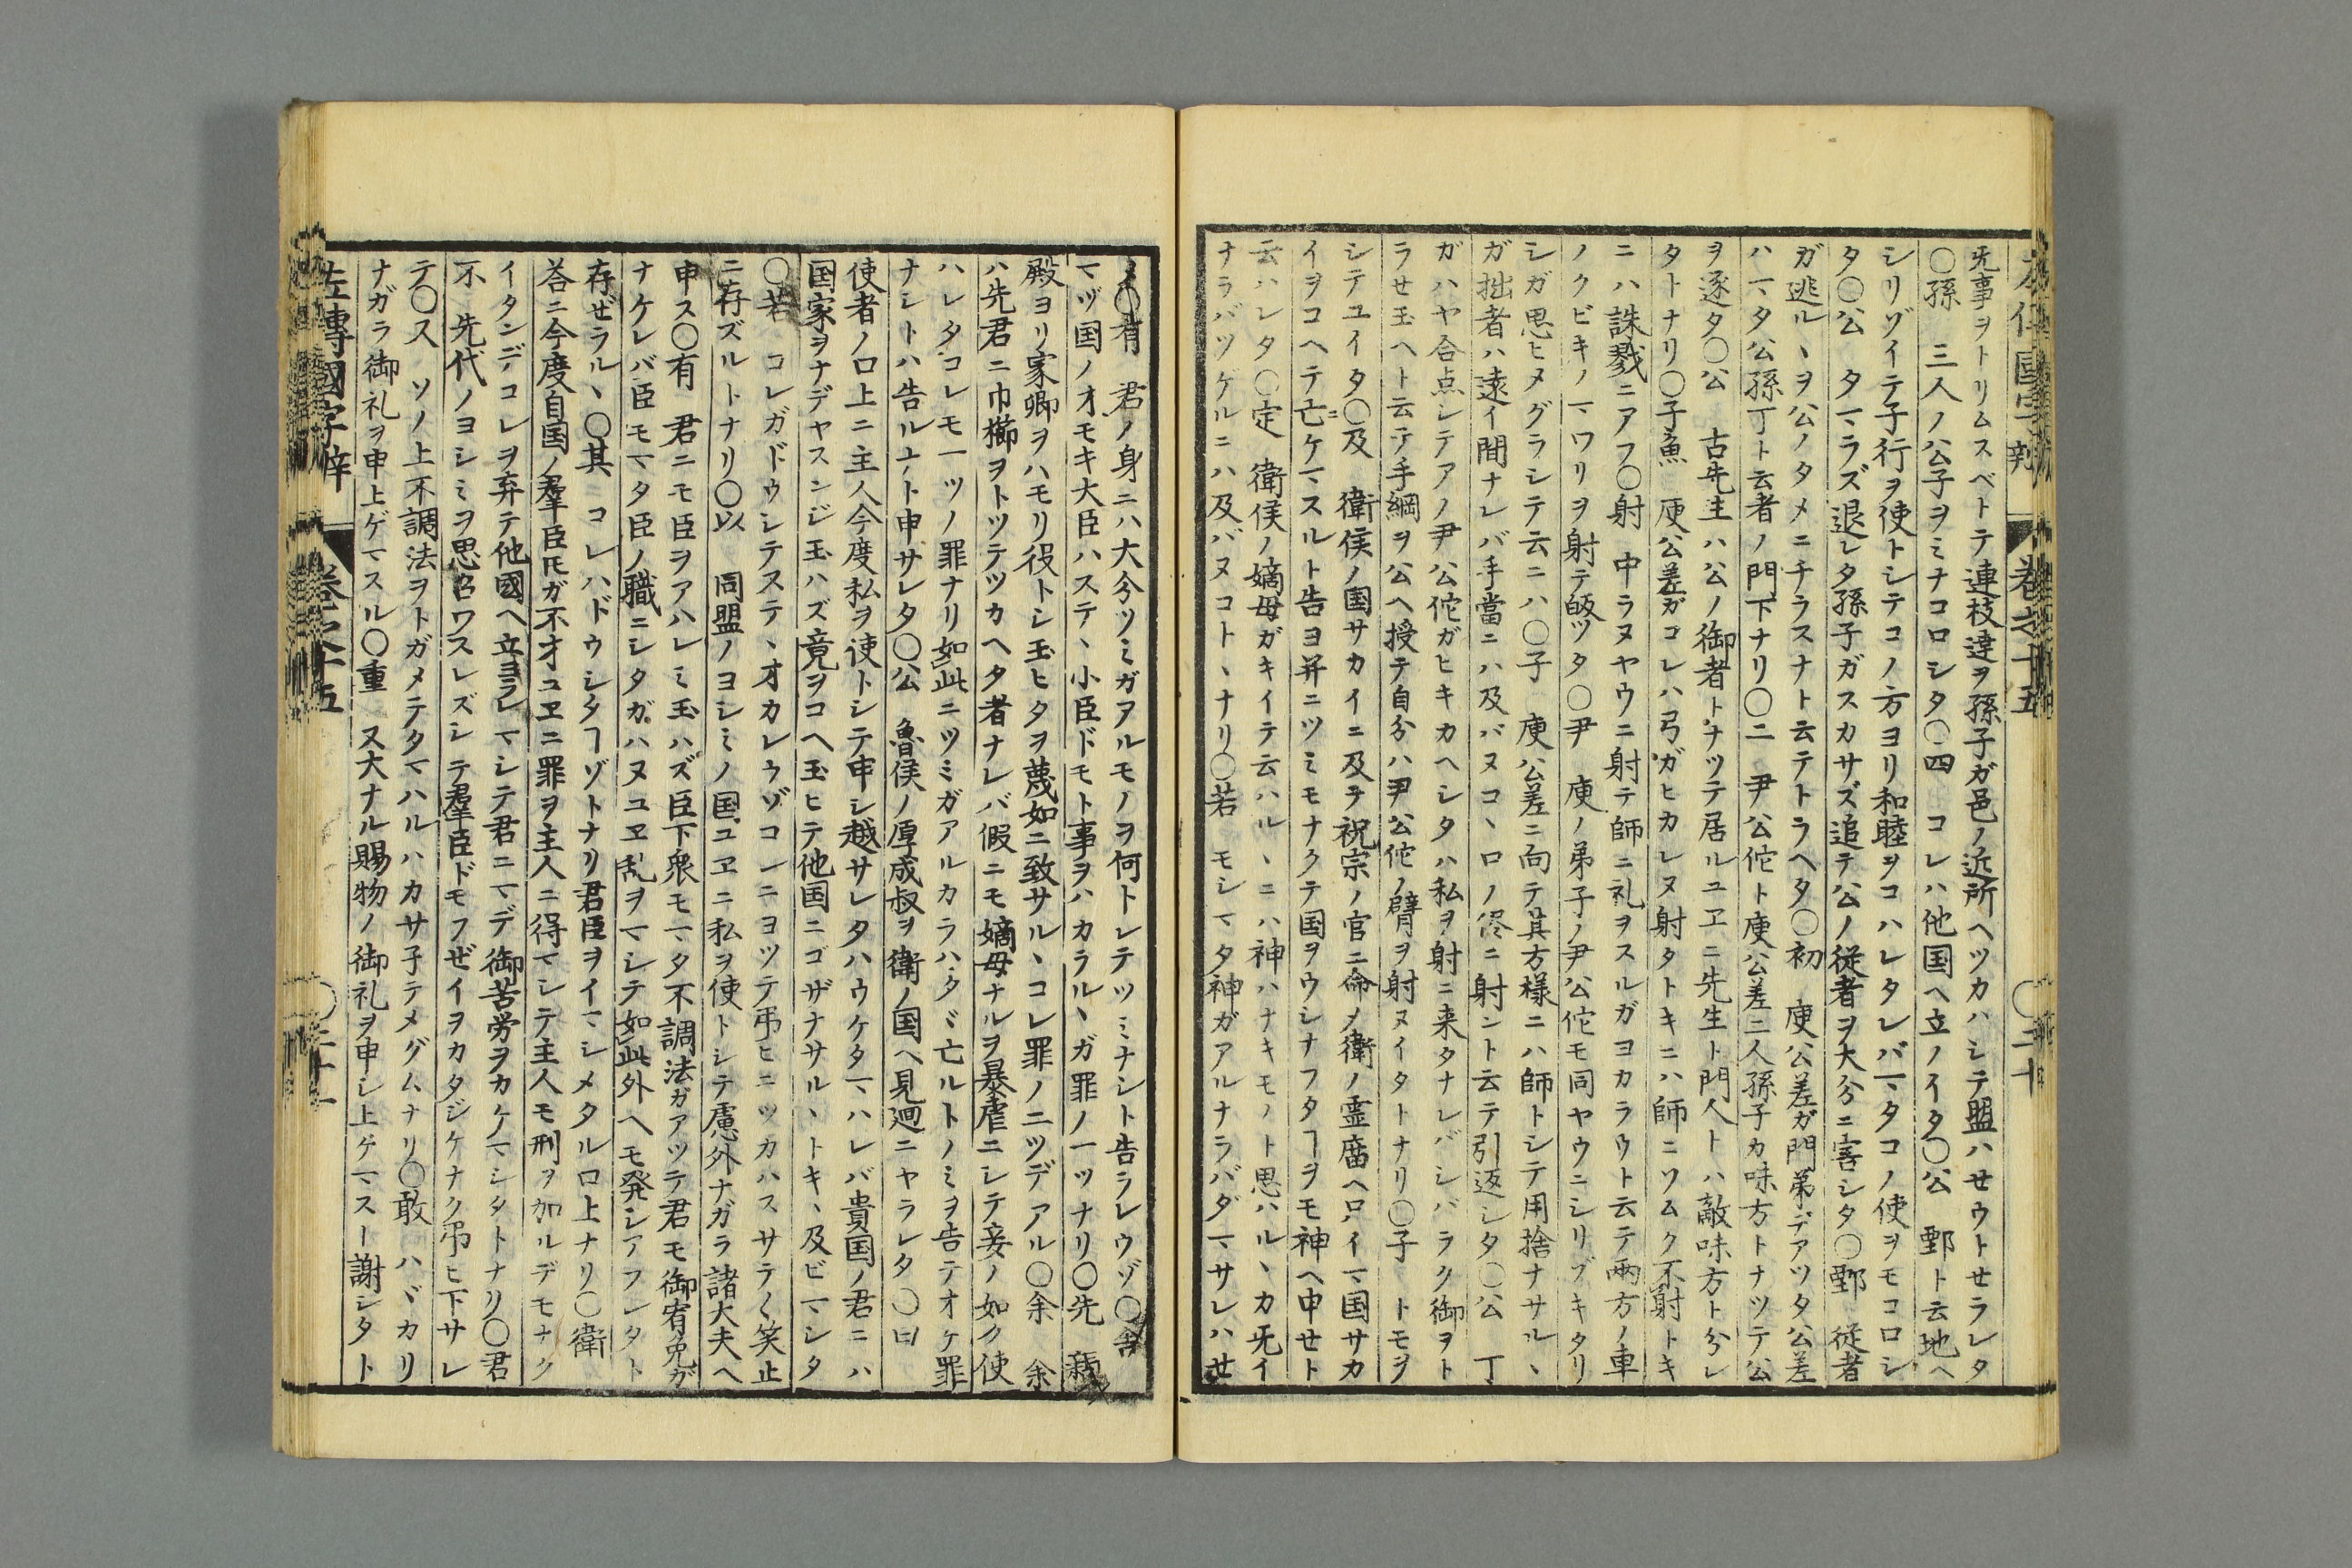 旡事ヲトリムスベトテ連枝達ヲ孫子ガ邑ノ近所ヘツカハシテ盟ハせウトせラレタ
〇孫 三人ノ公子ヲミナコロシタ〇四 コレハ他国ヘ立ノイタ〇公 鄄ト云地ヘ
シリゾイテ子行ヲ使トシテコノ方ヨリ和睦ヲコハレタレバマタコノ使ヲモコロシ
タ〇公 タマラズ退レタ孫子ガスカサズ追テ公ノ従者ヲ大分ニ害シタ〇鄄 従者
ガ逃ルヽヲ公ノタメニチラスナト云テトラヘタ〇初 庾公差ガ門弟デアツタ公差
ハマタ公孫丁ト云者ノ門下ナリ〇二 尹公佗ト庾公差二人孫子カ味方トナツテ公
ヲ逐タ〇公 古先主ハ公ノ御者トナツテ居ルユヱニ先生ト門人トハ敵味方ト分レ
タトナリ〇子魚 庾公差ガコレハ弓ガヒカレヌ射タトキニハ師ニソムク不射トキ
ニハ誅戮ニアフ〇射 中ラヌヤウニ射テ師ニ礼ヲスルガヨカラウト云テ兩方ノ車
ノクビキノマワリヲ射テ皈ツタ〇尹 庾ノ弟子ノ尹公佗モ同ヤウニシリゾキタリ
シガ思ヒメグラシテ云ニハ〇子 庾公差ニ向テ其方様ニハ師トシテ用捨ナサルヽ
ガ拙者ハ遠イ間ナレバ手當ニハ及バヌコヽロノ侭ニ射ント云テ引返シタ〇公 丁
ガハヤ合点シテアノ尹公佗ガヒキカヘシタハ私ヲ射ニ来タナレバシバラク御ヲト
ラせ玉ヘト云テ手綱ヲ公ヘ授テ自分ハ尹公佗ノ臂ヲ射ヌイタトナリ〇子 トモヲ
シテユイタ〇及 衛侯ノ国サカイニ及テ祝宗ノ官ニ命メ衛ノ霊廟ヘ只イマ国サカ
イヲコヘテ亡ケマスルト告ヨ并ニツミモナクテ国ヲウシナフタヿヲモ神ヘ申せト
云ハレタ〇定 衛侯ノ嫡母ガキイテ云ハルヽニハ神ハナキモノト思ハルヽカ旡イ
ナラバツゲルニハ及バヌコトヽナリ〇若 モシマタ神ガアルナラバダマサレハせ
〇有 君ノ身ニハ大分ツミガアルモノヲ何トシテツミナシト告ラレウゾ〇舎
マヅ国ノオモキ大臣ハステヽ小臣ドモト事ヲハカラルヽガ罪ノ一ツナリ〇先
殿ヨリ家卿ヲハモリ役トシ玉ヒタヲ蔑如ニ致サルヽコレ罪ノニツデアル〇余 余
ハ先君ニ巾櫛ヲトツテツカヘタ者ナレバ假ニモ嫡母ナルヲ暴虐ニシテ妾ノ如ク使
ハレタコレモ一ツノ罪ナリ如此ニツミガアルカラハタヾ亡ルトノミヲ告テオケ罪
ナシトハ告ルナト申サレタ〇公 魯侯ノ厚成叔ヲ衛ノ国ヘ見廻ニヤラレタ〇曰
使者ノ口上ニ主人今度私ヲ使トシテ申シ越サレタハウケタマハレバ貴国ノ君ニハ
国家ヲナデヤスンジ玉ハズ竟ヲコヘ玉ヒテ他国ニゴザナサルヽトキヽ及ビマシタ
〇若 コレガドウシテステヽオカレウゾコレニヨツテ弔ヒニツカハスサテ〱笑止
ニ存ズルトナリ〇以 同盟ノヨシミノ国ユヱニ私ヲ使トシテ慮外ナガラ諸大夫ヘ
申ス〇有 君ニモ臣ヲアハレミ玉ハズ臣下衆モマタ不調法ガアツテ君モ御宥免ガ
ナケレバ臣モマタ臣ノ職ニシタガハヌユヱ乱ヲマシテ如此外ヘモ発シアフレタト
存ぜラルヽ〇其 コレハドウシタヿゾトナリ君臣ヲイマシメタル口上ナリ〇衛
荅ニ今度自国ノ羣臣𪜈ガ不才ユヱニ罪ヲ主人ニ得マシテ主人モ刑ヲ加ルデモナク
イタンデコレヲ弃テ他國ヘ立ヨラレマシテ君ニマデ御苦労ヲカケマシタトナリ〇君
不 先代ノヨシミヲ思召ワスレズシテ羣臣ドモフぜイヲカタジケナク弔ヒ下サレ
テ〇又 ソノ上不調法ヲトガメテタマハルハカサ子テメグムナリ〇敢 ハヾカリ
ナガラ御礼ヲ申上ゲマスル〇重 又大ナル賜物ノ御礼ヲ申シ上ゲマスト謝シタト
左傳國字辯 巻之十五